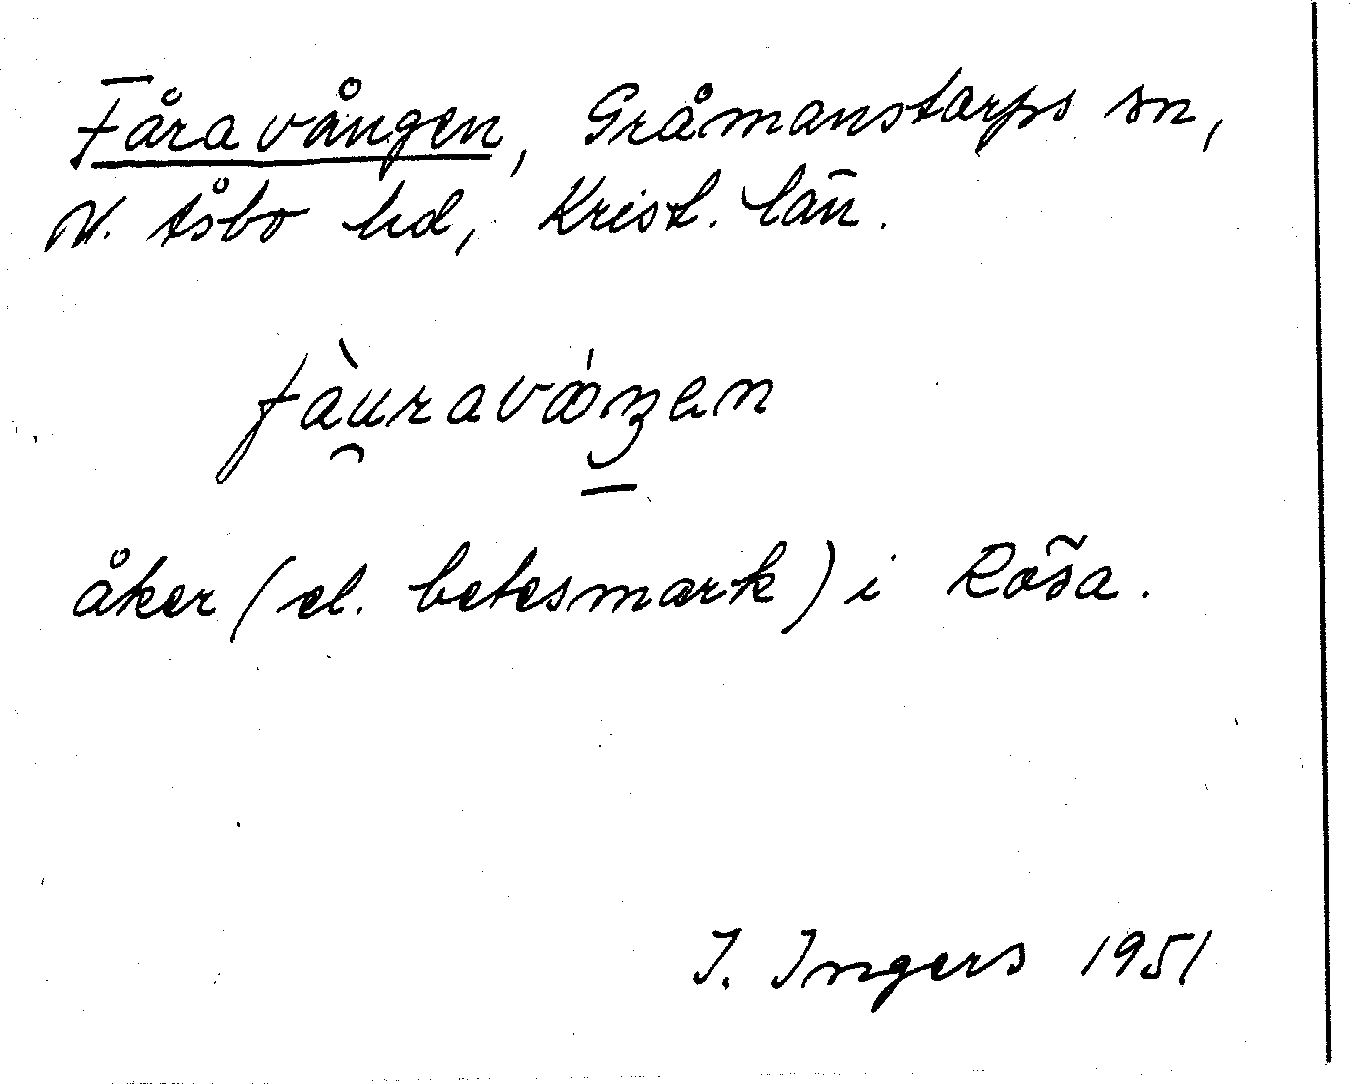 Fåravången, Gråmanstorps sn,
N. Åsbo hd, Krist. län.
fàu̯raváŋen
åker (el. betesmark) i Rösa.
I. Ingers 1951